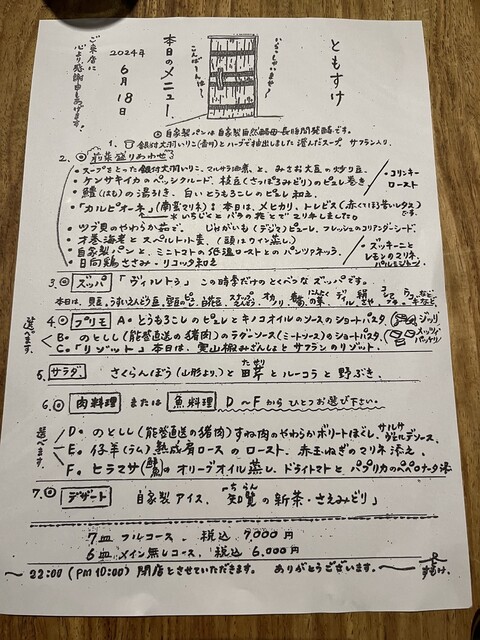 ともすけ
いらっしゃいませ。
こんばんは〜
本日のメニュー
2024年
6月
18日
ご来店に
心より感謝申しあげます。
自家製パンは自家製自然酵母長時間発酵です。
1. 銀付大羽いりこ(香川)とハーブで抽出しました澄んだスープ サフラン入り。
2. 前菜盛りあわせ
・スープをとった銀付大羽いりこ、マルサラ酒煮と、みさお大豆の炒り豆。
・ケンサキイカのペッシクルード、枝豆(さっぽろみどり)のピュレ巻き
・鱧(はも)の湯引き、白いとうもろこしのピュレ和え。
・「カルピオーネ」(南蛮マリネ) 本日は、メヒカリ、トレビス(赤くほろ苦いレタス)
*いちじくとバラの酢でマリネしました。 です。
・ツブ貝のやわらか茹で、じゃがいも(デジマ)ピューレ、フレッシュのコリアンダーシード。
・才巻海老とスペルト小麦、(頭はワイン蒸し。)
・自家製パンと、ミニトマトの低温ローストとのパンツァネッラ。
・日向鶏ささみ・リコッタ和え
・コリンキー
ロースト
・ズッキーニと
レモンのマリネ、
パルミジャーノ
3. ズッパ 「ヴィルトゥ」この時季だけのとくべつなズッパです。
4. プリモ A。とうもろこしのピュレとキノコオイルのソースのショートパスタ
選べます。
B。のとしし(能登直送の猪肉)のラグーソース(ミートソース)のショートパスタ。
C。「リゾット」本日は、実山椒みざんしょとサフランのリゾット。
5. サラダ さくらんぼう(山形より)と田芹とルーコラと野ぶき。
6. 肉料理 または 魚料理 D〜Fからひとつお選び下さい。
選べます。
D。のとしし(能登直送の猪肉)すね肉のやわらかボリートほぐし、サルサヴェルデソース。
E。仔羊(ラム)熟成肩ロースのロースト、赤玉ねぎのマリネ添え。
F。ヒラマサのオリーブオイル蒸し、ドライトマトとパプリカのペペロナータ添
7. デザート 自家製アイス、「知覧の新茶・さえみどり」
7皿 フルコース 、税込 7,000円
6皿 メイン無しコース、税込 6,000円
〜22:00(PM10:00)閉店とさせていただきます。 ありがとうございます。〜